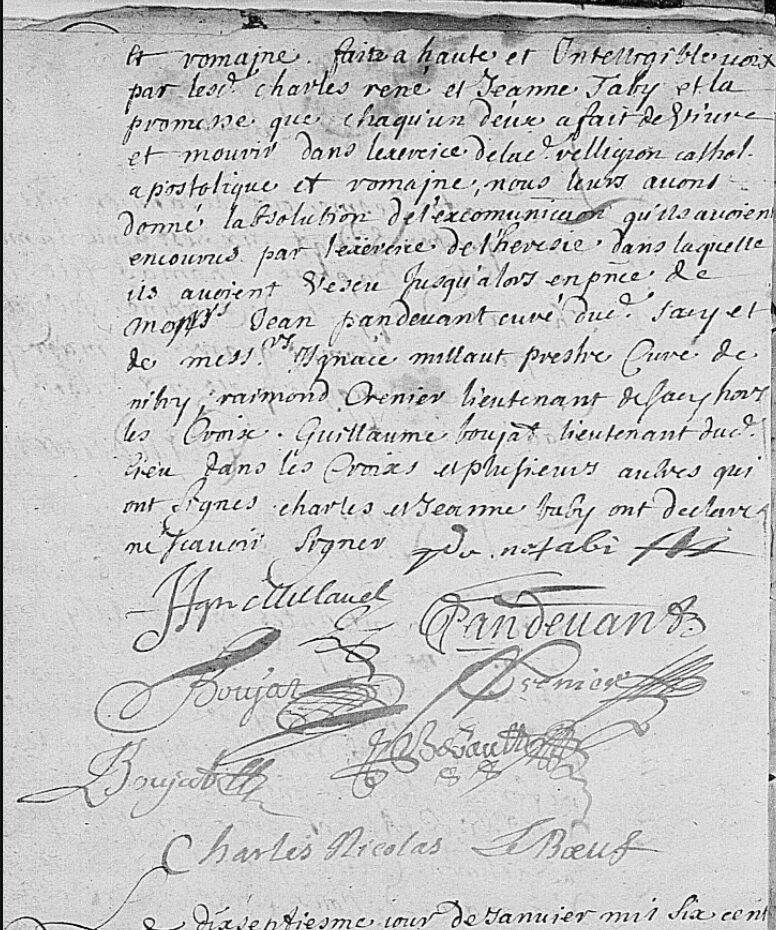 et romajne. faitte a haute et Intelligible voix
par lesd. charles rené et Jeanne Baby et la
promesse que chaqu'un deux a fait de Vivre
et mourir dans lexercice de lad. relligion cathol.
apostolique et romajne, nous leurs avons
donné labsolution de l'excomunicaon qu'ils avoient
encourus par l'exercice de l'heresie dans laquelle
ils avoient Vescu Jusqu'alors en pnce de
Jean pandevant curé dud. Sacy et
de mess.rs Ignace millaut prestre Curé de
nitry, raimond Grenier lieutenant de sacy hors
les Croix. Guillaume boujat lieutenant dud.
lieu dans les Croix et plusieurs autres qui
ont signes charles et Jeanne baby ont declaré
ne scavoir signer
Millaut
Pandevant
Boujat
Grenier
Boujat
Charles Nicolas LeBoeuf
dixseptiesme jour de Janvier mil six cent